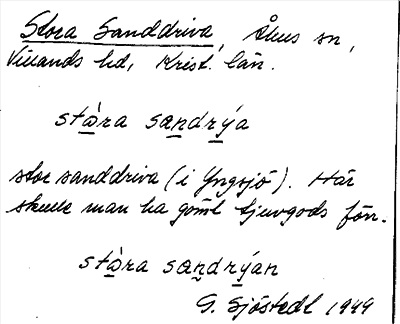 Stora Sanddriva, Åhus sn,
Villands hd, Krist. län.
stɑ̀ra sandrýa
stor sanddriva (i Yngsjö). Här
skulle man ha gömt tjuvgods förr.
stɑ̀ra sandrýan
G. Sjöstedt 1949